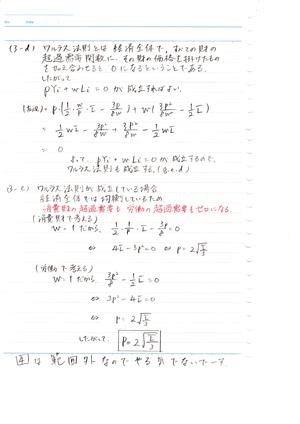 (3-d) ワルラス法則とは経済全体で、すべての財の
超過需要関数に、その財の価格を掛けたもの
を足し合わせると、0になるということである。
したがって
pYi + wLi = 0 が成立すればよい。
(左辺) = p(1/2 · w/p · I - 3p/8w) + w(3p²/8w² - 1/2 I)
= 1/2 wI - 3p²/8w + 3p²/8w - 1/2 wI
= 0
よって、pYi + wLi = 0 が成立するので、
ワルラス法則も成立する。(q.e.d)
(3-e) ワルラス法則が成立している場合
経済全体では均衡しているため
消費財の超過需要も労働の超過需要もゼロになる。
(消費財で考える)
w = 1 だから、1/2 · 1/p · I - 3p/8 = 0
⇔ 4I - 3p² = 0 ⇔ p = 2√I/3
(労働で考える)
w = 1 だから、3p²/8 - 1/2 I = 0
⇔ 3p² - 4I = 0
⇔ p = 2√I/3
したがって、p = 2√I/3
4 は範囲外なのでやる気でないでーす